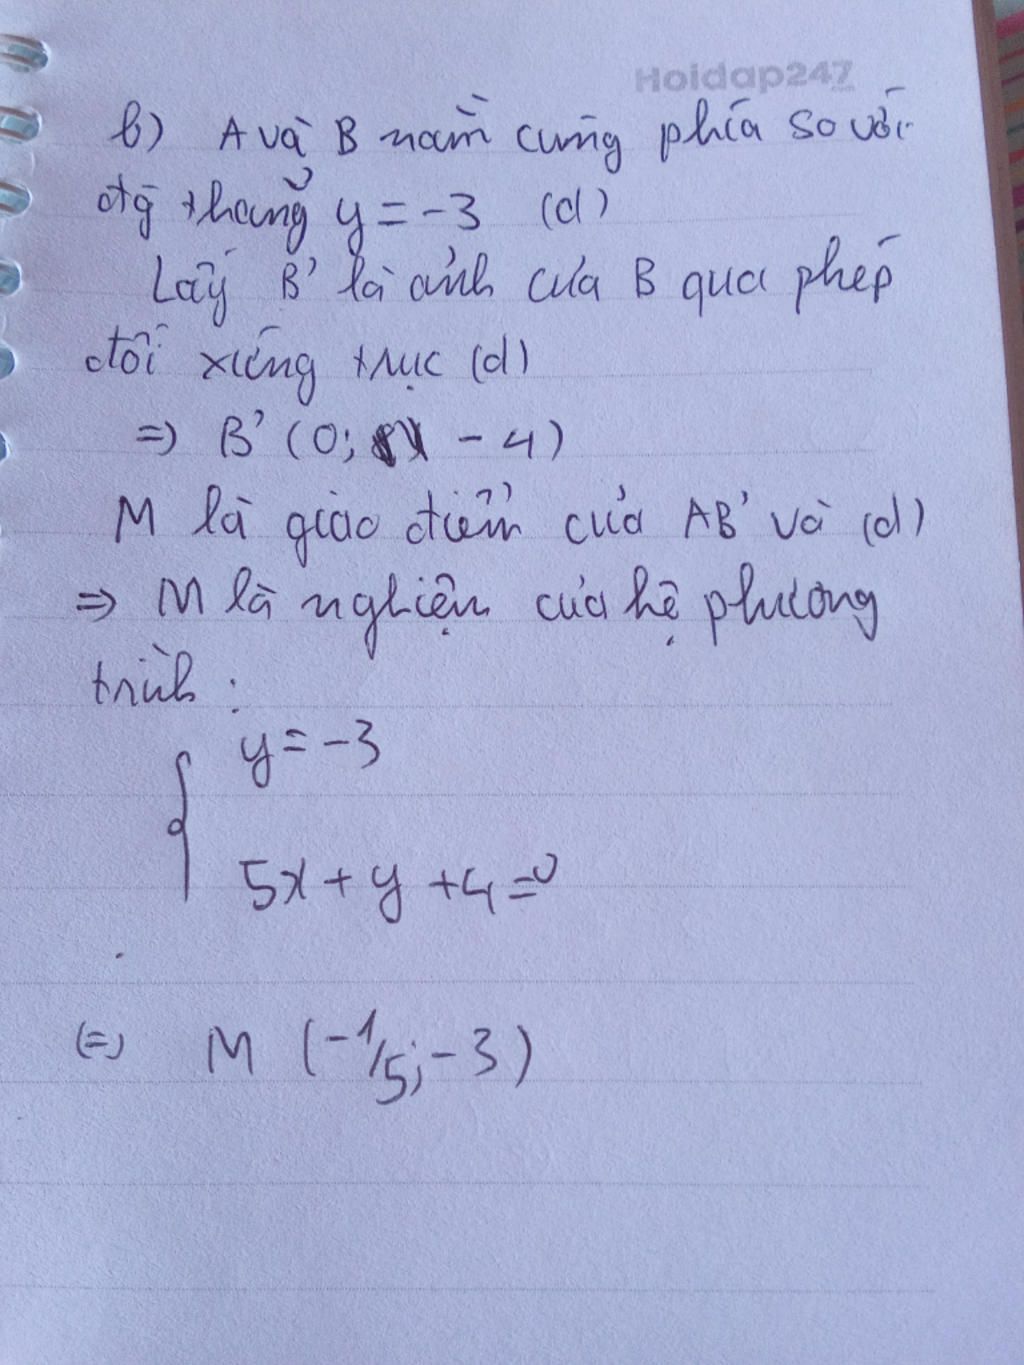 Hoidap247
b) A và B nằm cùng phía so với
đg thẳng y = -3 (d)
Lấy B' là ảnh của B qua phép
đối xứng trục (d)
=> B' (0; - 4)
M là giao điểm của AB' và (d)
=> M là nghiệm của hệ phương
trình :
y = -3
5x + y + 4 = 0
(=) M (-1/5; -3)